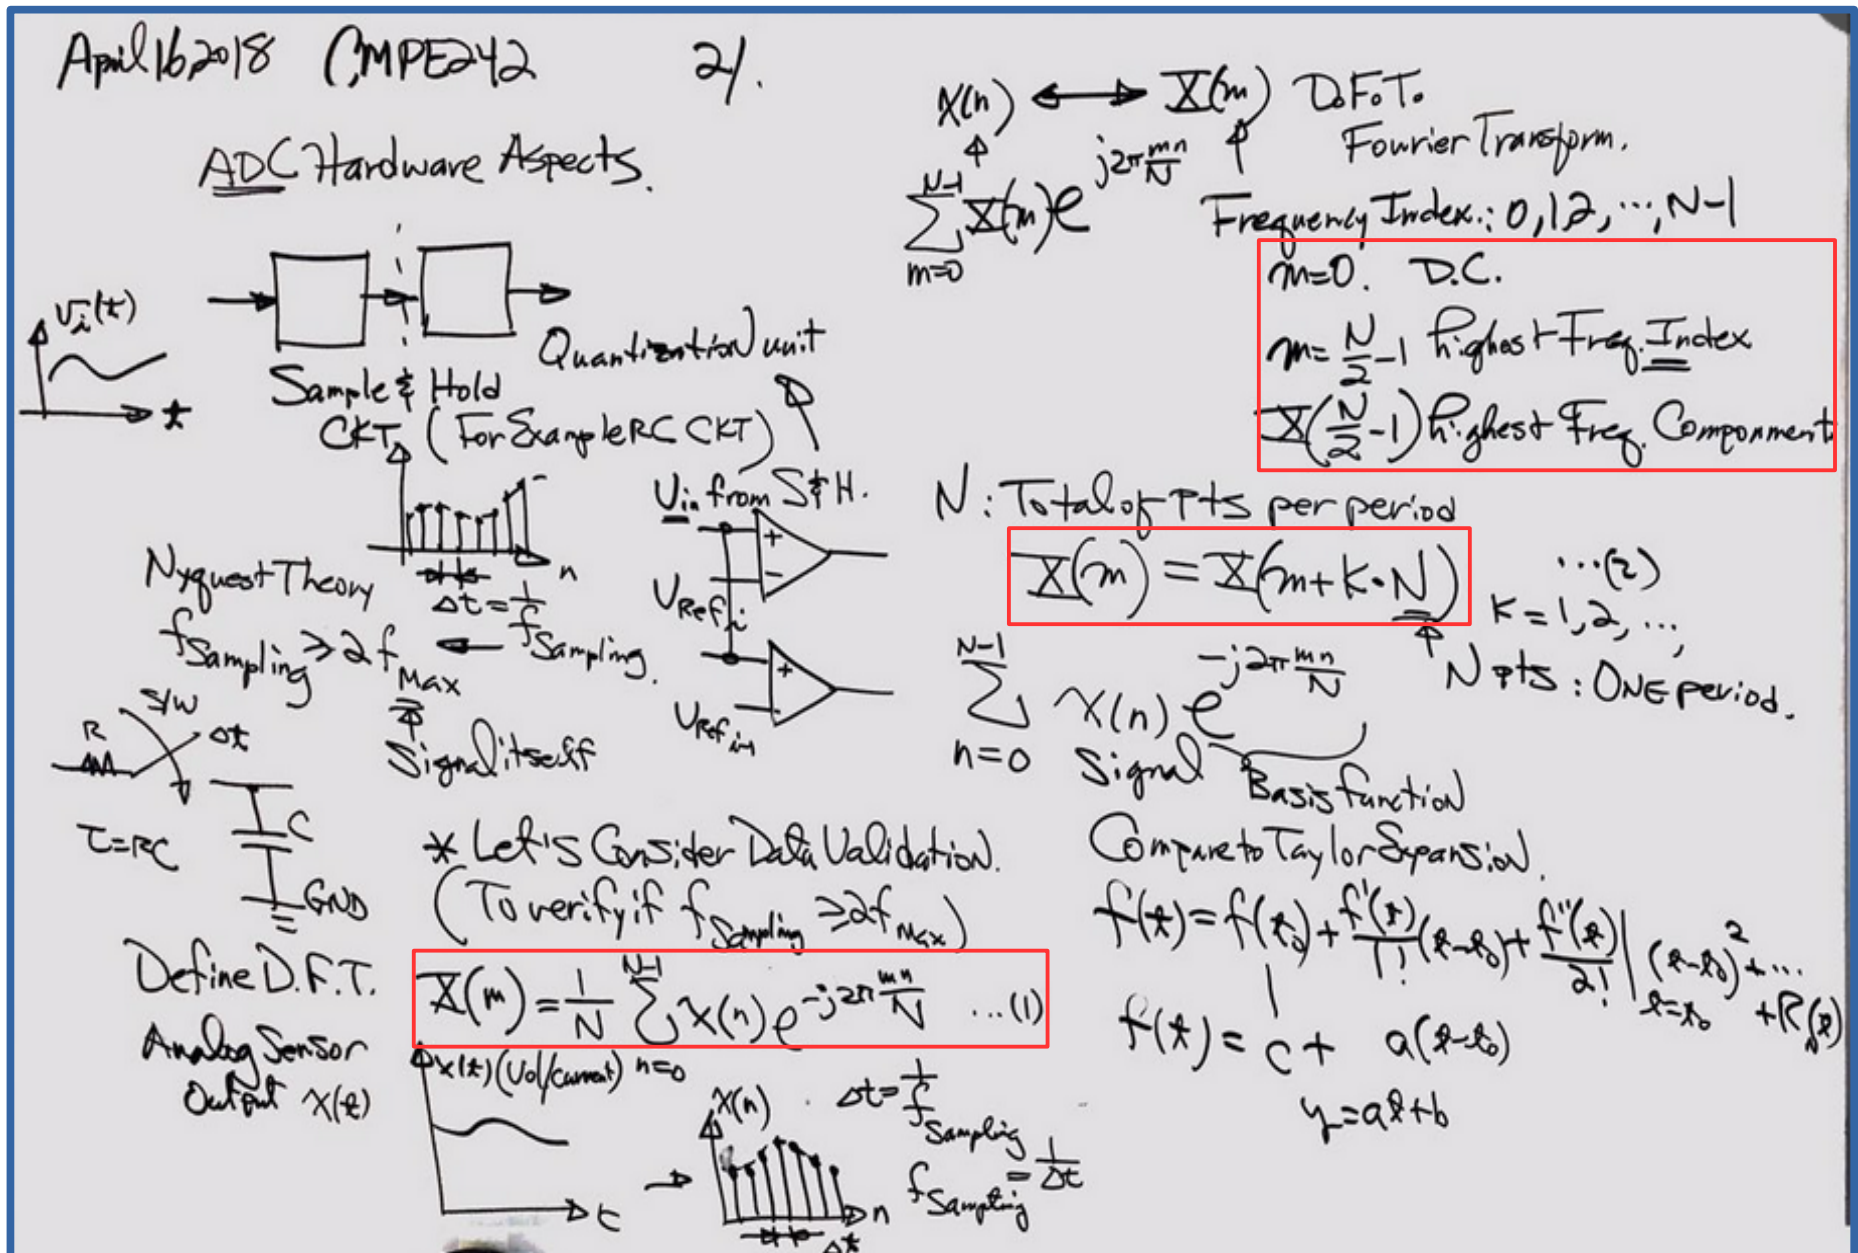 April 16, 2018 CMPE242 21.
ADC Hardware Aspects.
Vi(t)
t
Quantization unit
Sample & Hold
CKT (For Example RC CKT)
n
Δt = 1/fSampling
Nyquest Theory
fSampling ≥ 2 fMax
Signal itself
Vin from S&H.
+
-
VRefi
+
-
VRefi-1
R
S/W
Δt
τ=RC
C
GND
* Let's Consider Data Validation.
(To verify if fSampling ≥ 2fMax)
Define D.F.T.
X(m) = 1/N Σ_{n=0}^{N-1} x(n) e^{-j2π mn/N} ...(1)
Analog Sensor
Output x(t)
x(t) (Vol/Current)
t
x(n)
n
Δt
Δt = 1/fSampling
fSampling = 1/Δt
x(n) ↔ X(m) D.F.T.
Fourier Transform.
Σ_{m=0}^{N-1} X(m) e^{j2π mn/N}
Frequency Index.: 0,1,2, ..., N-1
m=0. D.C.
m= N/2 -1 highest Freq. Index
X(N/2 -1) highest Freq. Componment
N: Total of pts per period
X(m) = X(m+K·N) ...(2)
K = 1,2, ...,
N pts: ONE period.
Σ_{n=0}^{N-1} x(n) e^{-j2π mn/N}
Signal
Basis function
Compare to Taylor Expansion.
f(t) = f(t0) + f'(t)/1! (t-t0) + f''(t)/2! |t=t0 (t-t0)^2 + ... + RN(t)
f(t) = c + a(t-t0)
y=at+b